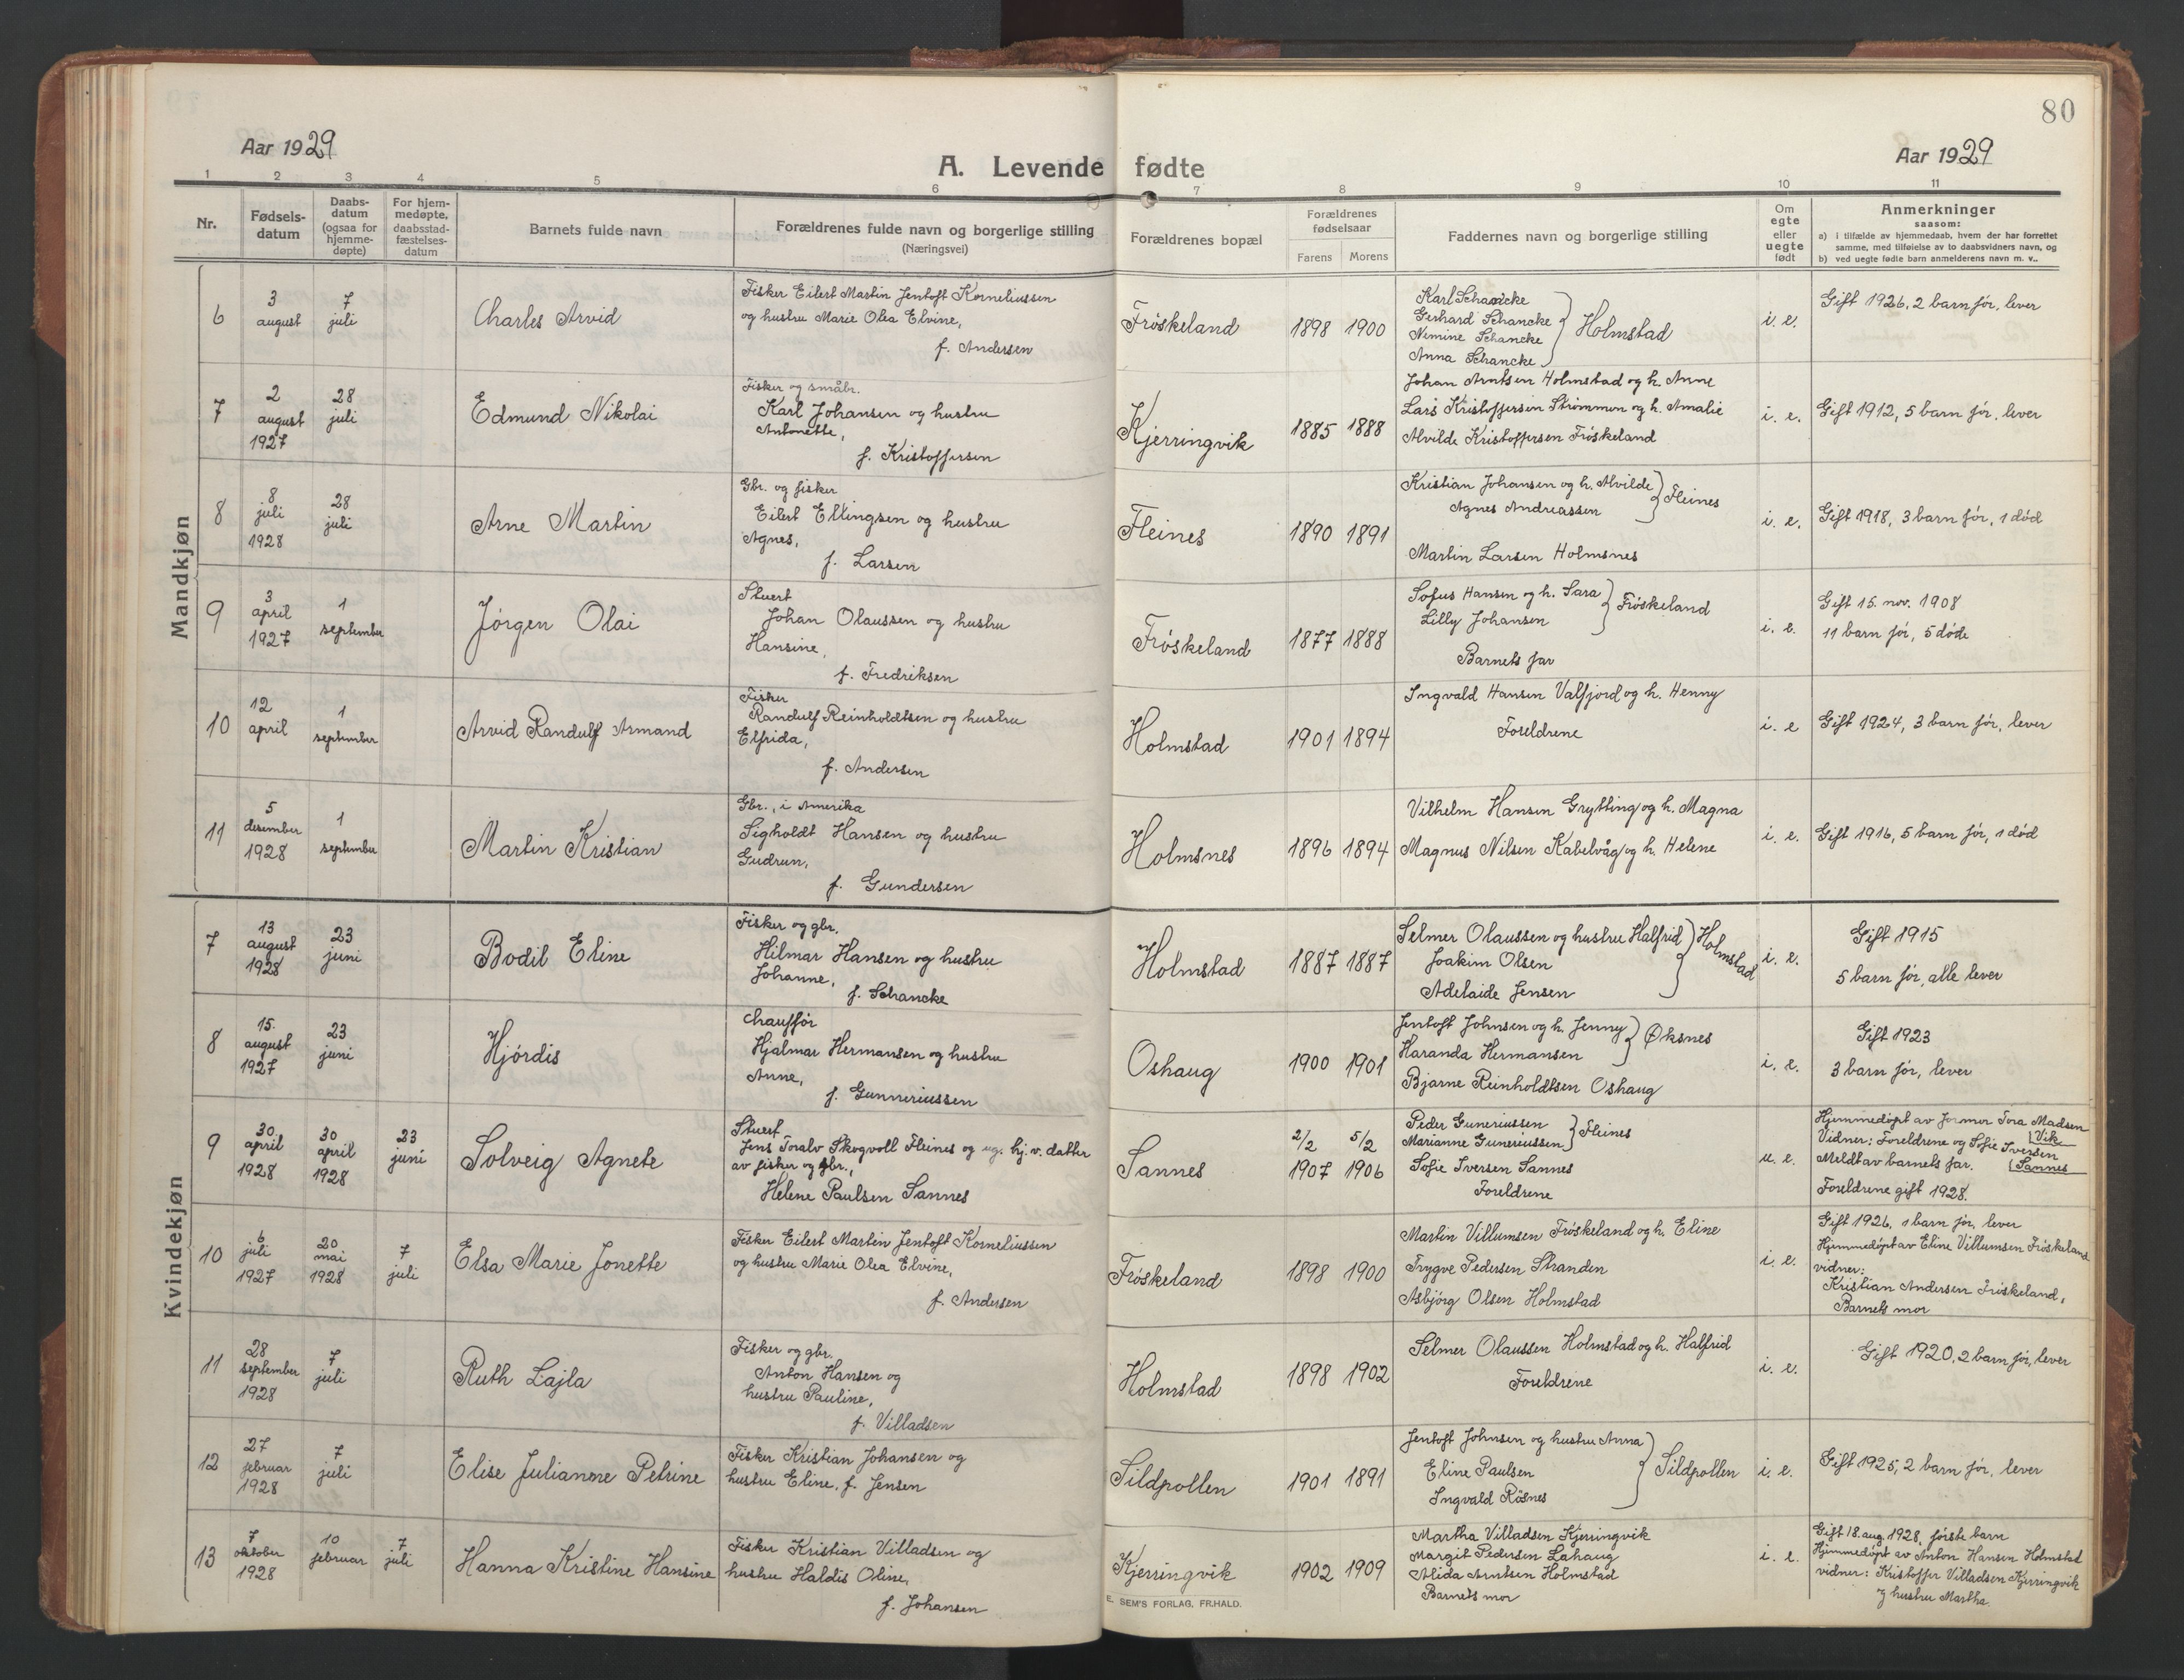 80
Aar 1929
A. Levende fødte
Aar 1929
1 2 3 4 5 6 7 8 9 10 11
Nr.
Fødsels-
datum
Daabs-
datum
(ogsaa for
hjemme-
døpte)
For hjem-
medøpte,
daabsstad-
fæstelses-
datum
Barnets fulde navn
Forældrenes fulde navn og borgerlige stilling
(Næringsvei)
Forældrenes bopæl
Forældrenes
fødselsaar
Farens Morens
Faddernes navn og borgerlige stilling
Om
egte
eller
uegte
født
Anmerkninger
saasom:
a) i tilfælde av hjemmedaab, hvem der har forrettet
samme, med tilføielse av to daabsvidners navn, og
b) ved uegte fødte barn anmelderens navn m. v..
Mandkjøn
6
3
august
7
juli
Charles Arvid
Fisker Eilert Martin Jentoft Korneliussen
og hustru Marie Olea Elvine,
f. Andersen
Frøskeland
1898 1900
Karl Schancke
Gerhard Schancke
Nimine Schancke
Anna Schancke
Holmstad
i. e.
Gift 1926, 2 barn før, lever
7
2
august
1927
28
juli
Edmund Nikolai
Fisker og småbr.
Karl Johansen og hustru
Antonette,
f. Kristoffersen
Kjerringvik
1885 1888
Johan Arntsen Holmstad og h. Anne
Lars Kristoffersen Strømmen og h. Amalie
Alvilde Kristoffersen Frøskeland
i. e.
Gift 1912, 5 barn før, lever
8
8
juli
1928
28
juli
Arne Martin
Gbr. og fisker
Eilert Ellingsen og hustru
Agnes,
f. Larsen
Fleines
1890 1891
Kristian Johansen og h. Alvilde
Agnes Andreassen
Fleines
Martin Larsen Holmsnes
i. e.
Gift 1918, 3 barn før, 1 død
9
3
april
1927
1
september
Jørgen Olai
Stuert
Johan Olaussen og hustru
Hansine,
f. Fredriksen
Frøskeland
1877 1888
Sofus Hansen og h. Sara
Lilly Johansen
Frøskeland
Barnets far
i. e.
Gift 15. nov. 1908
11 barn før, 5 døde
10
12
april
1
september
Arvid Randulf Armand
Fisker
Randulf Reinholdtsen og hustru
Elfrida,
f. Andersen
Holmstad
1901 1894
Ingvald Hansen Valfjord og h. Henny
Foreldrene
i. e
Gift 1924, 3 barn før, lever
11
5
desember
1928
1
september
Martin Kristian
Gbr., i Amerika
Sigholdt Hansen og hustru
Gudrun,
f. Gundersen
Holmsnes
1896 1894
Vilhelm Hansen Grytting og h. Magna
Magnus Nilsen Kabelvåg og h. Helene
i. e.
Gift 1916, 5 barn før, 1 død
Kvindekjøn
7
13
august
1928
23
juni
Bodil Eline
Fisker og gbr.
Hilmar Hansen og hustru
Johanne,
f. Schancke
Holmstad
1887 1887
Selmer Olaussen og hustru Halfrid
Joakim Olsen
Adelaide Jensen
Holmstad
i. e.
Gift 1915
5 barn før, alle lever
8
15.
august
1927
23
juni
Hjørdis
Chauffør
Hjalmar Hermansen og hustru
Anne,
f. Gunneriussen
Oshaug
1900 1901
Jentoft Johnsen og h. Jenny
Haranda Hermansen
Øksnes
Bjarne Reinholdtsen Oshaug
i. e.
Gift 1923
3 barn før, lever
9
30.
april
1928
30
april
1928
23
juni
Solveig Agnete
Stuert
Jens Toralv Skogvoll Fleines og ug. hj. v. datter
av fisker og gbr.,
Helene Paulsen Sannes
Sannes
2/2
1907
5/2
1906
Peder Guneriussen
Marianne Guneriussen
Fleines
Sofie Iversen Sannes
Foreldrene
u. e.
Hjemmedøpt av Jormor Tora Madsen
Vik
Vidner: Foreldrene og Sofie Iversen
Sannes
Meldt av barnets far.
Foreldrene gift 1928.
10
6
juli
1927
20
mai
1928
7
juli
Elsa Marie Jonette
Fisker Eilert Martin Jentoft Korneliussen
og hustru Marie Olea Elvine,
f. Andersen
Frøskeland
1898 1900
Martin Villumsen Frøskeland og h. Eline
Trygve Pedersen Stranden
Asbjørg Olsen Holmstad
i. e.
Gift 1926, 1 barn før, lever
Hjemmedøpt av Eline Villumsen Frøskeland
vidner:
Kristian Andersen Frøskeland,
Barnets mor
11
28
september
1928
7
juli
Ruth Lajla
Fisker og gbr.
Anton Hansen og
hustru Pauline,
f. Villadsen
Holmstad
1898 1902
Selmer Olaussen Holmstad og h. Halfrid
Foreldrene
i. e.
Gift 1920, 2 barn før, lever
12
27
februar
1928
7
juli
Elise Julianne Petrine
Fisker Kristian Johansen og
hustru Eline, f. Jensen
Sildpollen
1901 1891
Jentoft Johnsen og hustru Anna
Eline Paulsen
Ingvald Røsnes
Sildpollen
i. e.
Gift 1925, 2 barn før, lever
13
7
oktober
1928
10
februar
7
juli
Hanna Kristine Hansine
Fisker Kristian Villadsen og
hustru Haldis Oline,
f. Johansen
Kjerringvik
1902 1909
Martha Villadsen Kjerringvik
Margit Pedersen Lahaug
Alida Arntsen Holmstad
Barnets mor
i. e.
Gift 18. aug. 1928, første barn
Hjemmedøpt av Anton Hansen Holmstad
vidner: Kristoffer Villadsen Kjerringvik
og hustru Martha.
E. SEM'S FORLAG, FR.HALD.